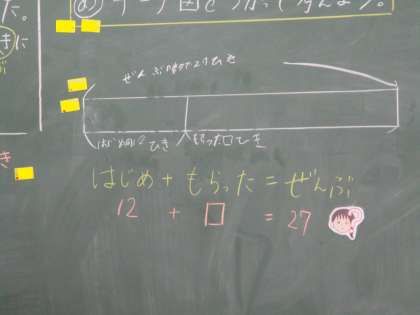 た。
テープ図を
きに
ぜんぶで27ひき
はじめ12ひき もらった□ひき
はじめ + もらった = ぜんぶ
12 + □ = 27